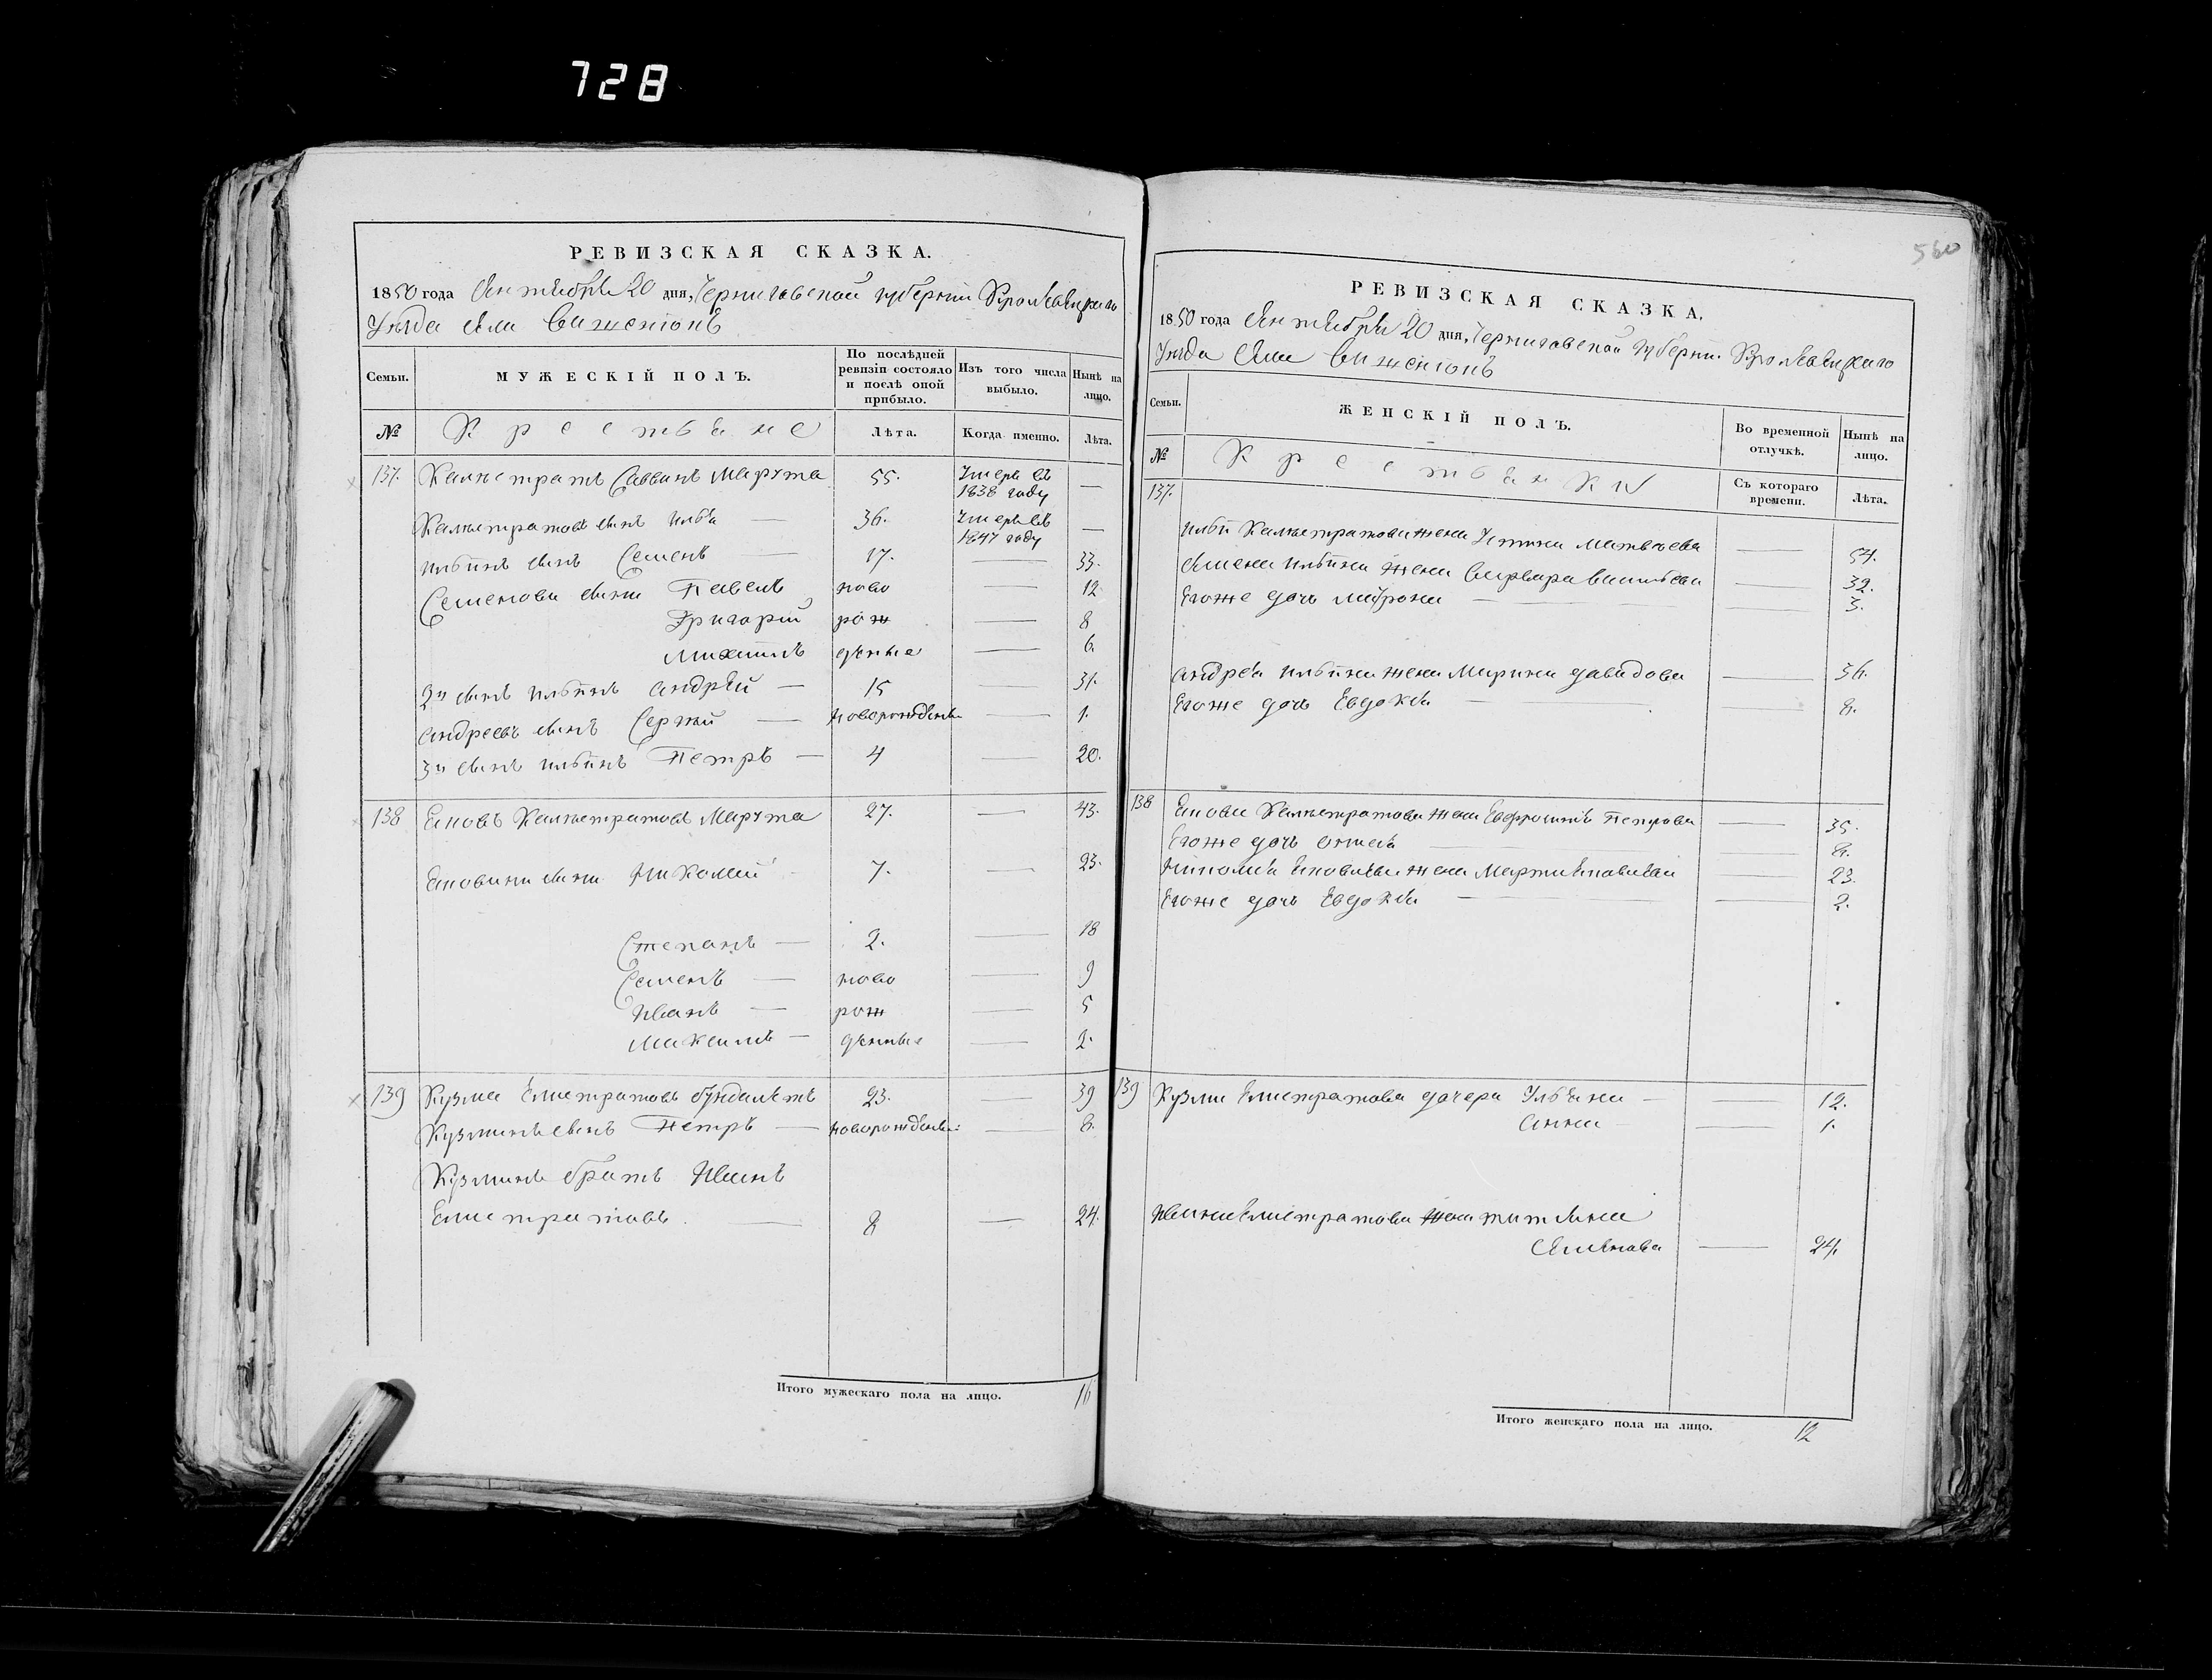 728
РЕВИЗСКАЯ СКАЗКА.
1850 года Сентября 20 дня, Черниговской губернии Кролевецкаго
Уезда Села
Семьи.
МУЖЕСКІЙ ПОЛЪ.
По послѣдней ревизіи состояло и послѣ оной прибыло.
Изъ того числа выбыло.
Нынѣ на лицо.
№
Крестьяне
Лѣта.
Когда именно.
Лѣта.
137. Калистратъ Саввинъ Марута 55. Умеръ въ 1838 году —
Калистратовъ сынъ Илья — 36. Умеръ въ 1847 году —
Ильинъ сынъ Семенъ — 17. — 33.
Семенова сыны Павелъ ново 12
Григорій рож — 8
Михаилъ денные — 6.
2й сынъ Ильинъ Андрей — 15 — 31.
Андреевъ сынъ Сергѣй — новорожденъ — 1.
3й сынъ Ильинъ Петръ — 4 — 20.
138 Калистратовъ Марута 27. — 43.
сыны Николай 7. — 23.
Степанъ — 2. — 18
Семенъ — ново — 9
Иванъ — рож — 5
Максимъ — денные — 2.
139 Кузма Елистратовъ 23. — 39
Кузминъ сынъ Петръ — новорожденъ — 8.
Кузминъ братъ Иванъ
Елистратовъ — 8 — 24.
Итого мужескаго пола на лицо. 16
560
РЕВИЗСКАЯ СКАЗКА.
1850 года Сентября 20 дня, Черниговской губерни. Кролевецкаго
Уезда Села
Семьи.
ЖЕНСКІЙ ПОЛЪ.
Во временной отлучкѣ.
Нынѣ на лицо.
№
Крестьянки
Съ котораго времени.
Лѣта.
137.
Ильи Калистратова жена Устина Матвѣева — 54.
Семена Ильина жена Варвара Васильева — 32.
Егоже дочь Матрона — 3.
Андрея Ильина жена Марина Давидова — 36.
Егоже дочь Евдокія — 8.
138 Калистратова жена Евфросинія Петрова — 35.
Егоже дочь — 8.
Николая жена — 23.
Егоже дочь Евдокія — 2.
139 Кузмы Елистратова дочери Ульяна — 12.
Анна — 1.
Ивана Елистратова жена Татьяна
Семенова — 24.
Итого женскаго пола на лицо. 12